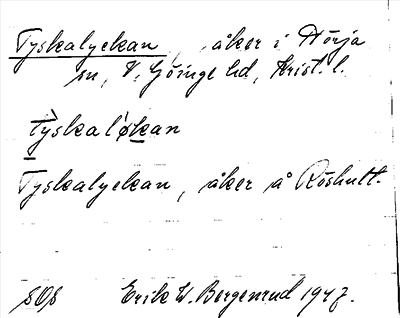 Tyskalyckan, åker i Hörja
sn, V. Göinge hd, Krist. l.
tỳskaløkan
Tyskalyckan, åker å Röshult.
sOs Erik W. Bergenrud 1947.